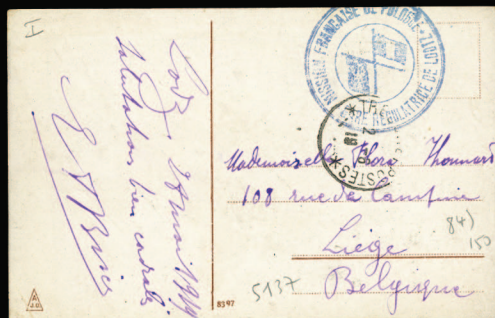 I
Lodz, 28 mai 1919
Salutations bien cordiales
MISSION FRANÇAISE DE POLOGNE
GARE REGULATRICE DE LODZ
TRÉSOR
POSTES
Mademoiselle Flora Thonnard
108 rue de Campine
Liège
Belgique
84)
150
5137
8397